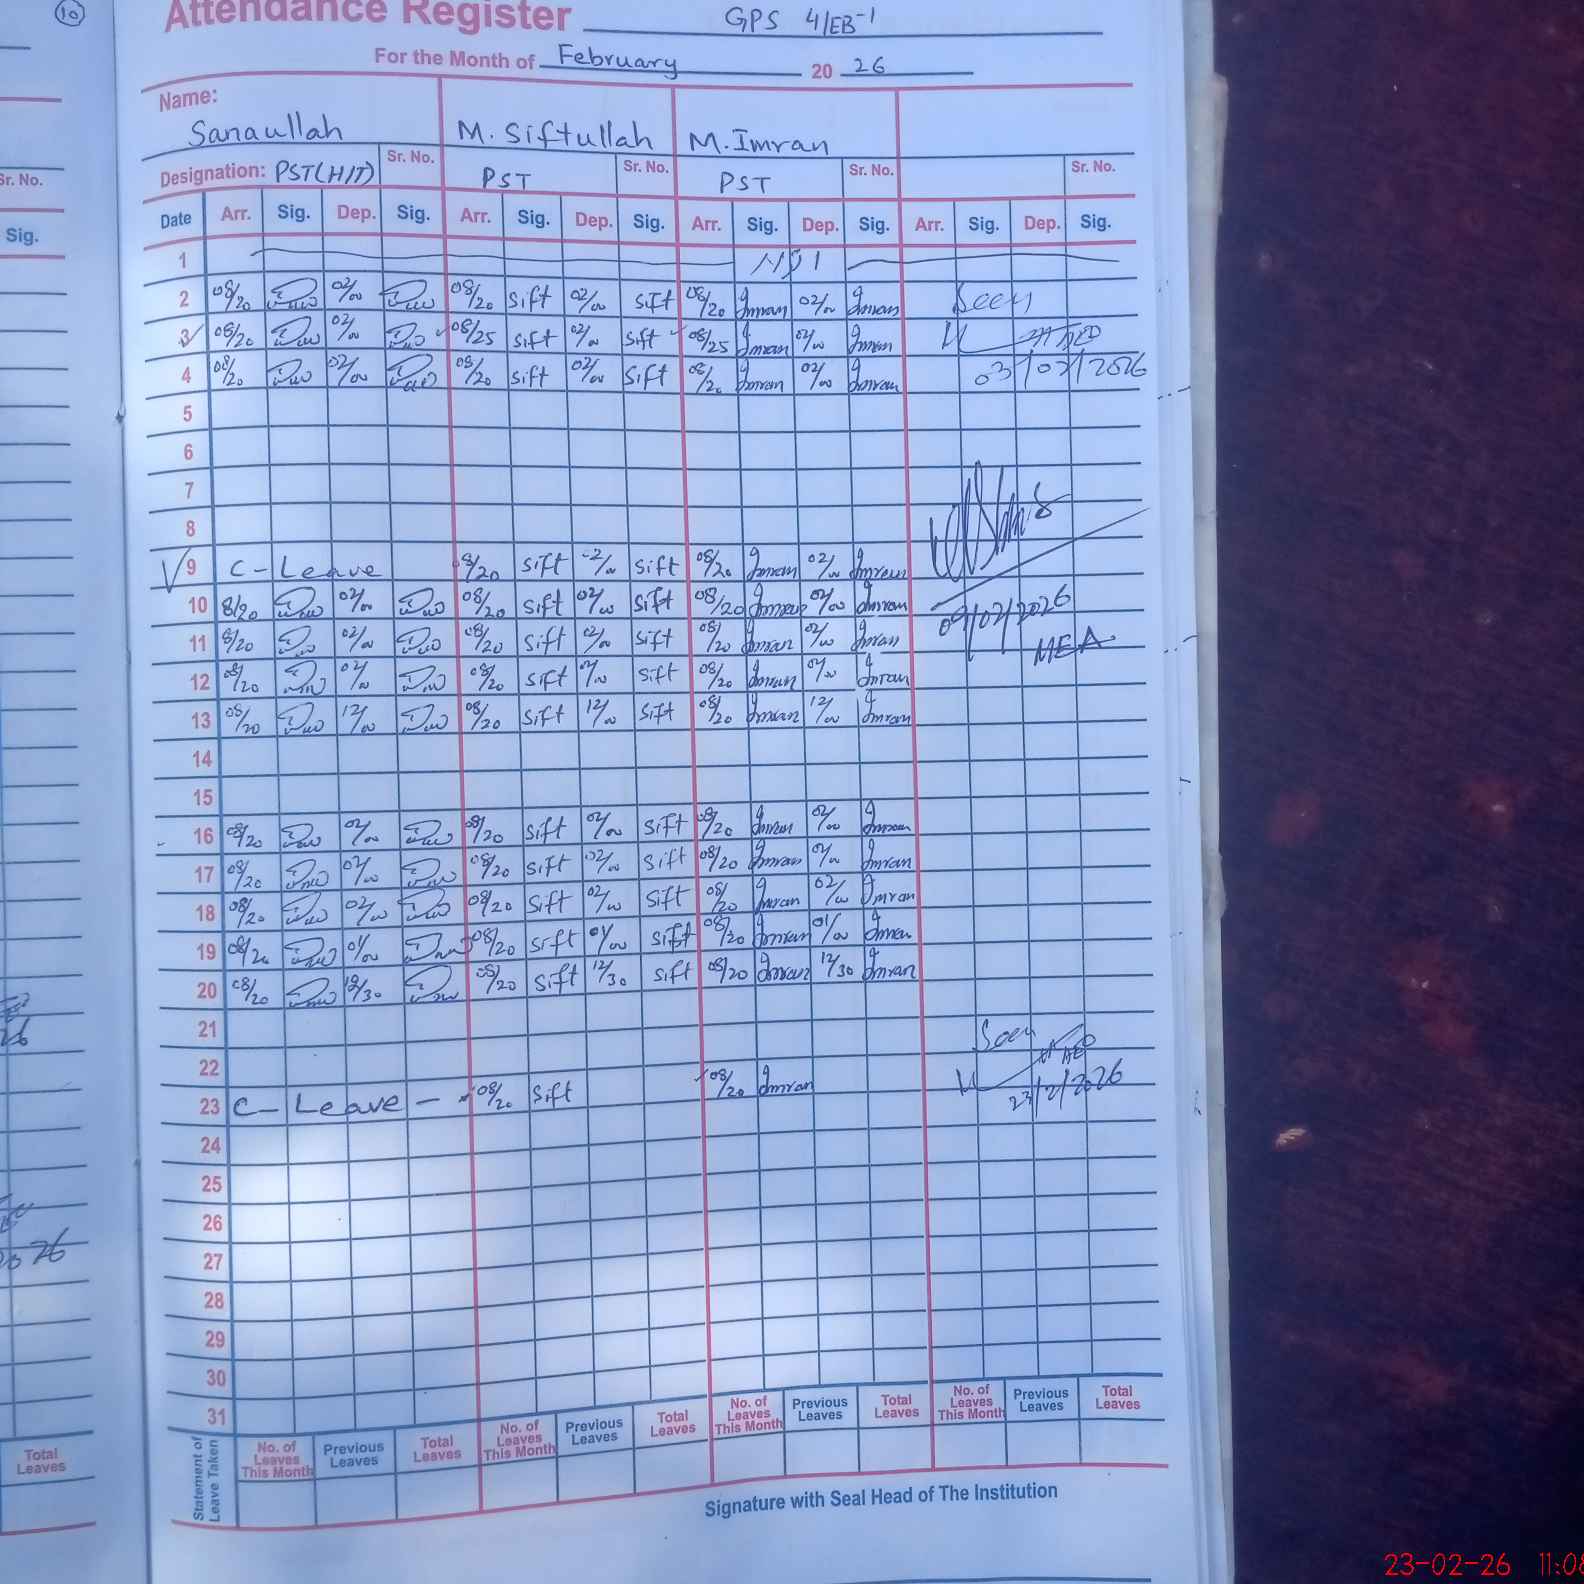 10
Attendance Register GPS 4/EB-1
For the Month of February 20 26
Name:
Sanaullah M. Siftullah M. Imran
Designation: PST(H/T) Sr. No. PST Sr. No. PST Sr. No. Sr. No.
Date Arr. Sig. Dep. Sig. Arr. Sig. Dep. Sig. Arr. Sig. Dep. Sig. Arr. Sig. Dep. Sig.
1
2 08/20 02/00 08/20 Sift 02/00 Sift 08/20 Imran 02/00 Imran Seen
3 08/20 02/00 08/25 Sift 02/00 Sift 08/25 Imran 02/00 Imran
4 08/20 02/00 08/20 Sift 02/00 Sift 08/20 Imran 02/00 Imran 03/02/2026
5
6
7
8
9 C-Leave 8/20 Sift 02/00 Sift 08/20 Imran 02/00 Imran
10 8/20 02/00 08/20 Sift 02/00 Sift 08/20 Imran 02/00 Imran 09/02/2026
11 8/20 02/00 08/20 Sift 02/00 Sift 08/20 Imran 02/00 Imran MEA
12 08/20 02/00 08/20 Sift 02/00 Sift 08/20 Imran 02/00 Imran
13 08/20 12/00 08/20 Sift 12/00 Sift 08/20 Imran 12/00 Imran
14
15
16 08/20 02/00 08/20 Sift 02/00 Sift 08/20 Imran 02/00 Imran
17 08/20 02/00 08/20 Sift 02/00 Sift 08/20 Imran 02/00 Imran
18 08/20 02/00 08/20 Sift 02/00 Sift 08/20 Imran 02/00 Imran
19 08/20 01/00 08/20 Sift 01/00 Sift 08/20 Imran 01/00 Imran
20 08/20 12/30 08/20 Sift 12/30 Sift 08/20 Imran 12/30 Imran
21 Seen
22
23 C-Leave - 08/20 Sift 08/20 Imran 23/2/2026
24
25
26
27
28
29
30
31
Statement of Leave Taken
No. of Leaves This Month Previous Leaves Total Leaves No. of Leaves This Month Previous Leaves Total Leaves No. of Leaves This Month Previous Leaves Total Leaves No. of Leaves This Month Previous Leaves Total Leaves
Signature with Seal Head of The Institution
Sr. No.
Sig.
26
2026
Total Leaves
23-02-26 11:08